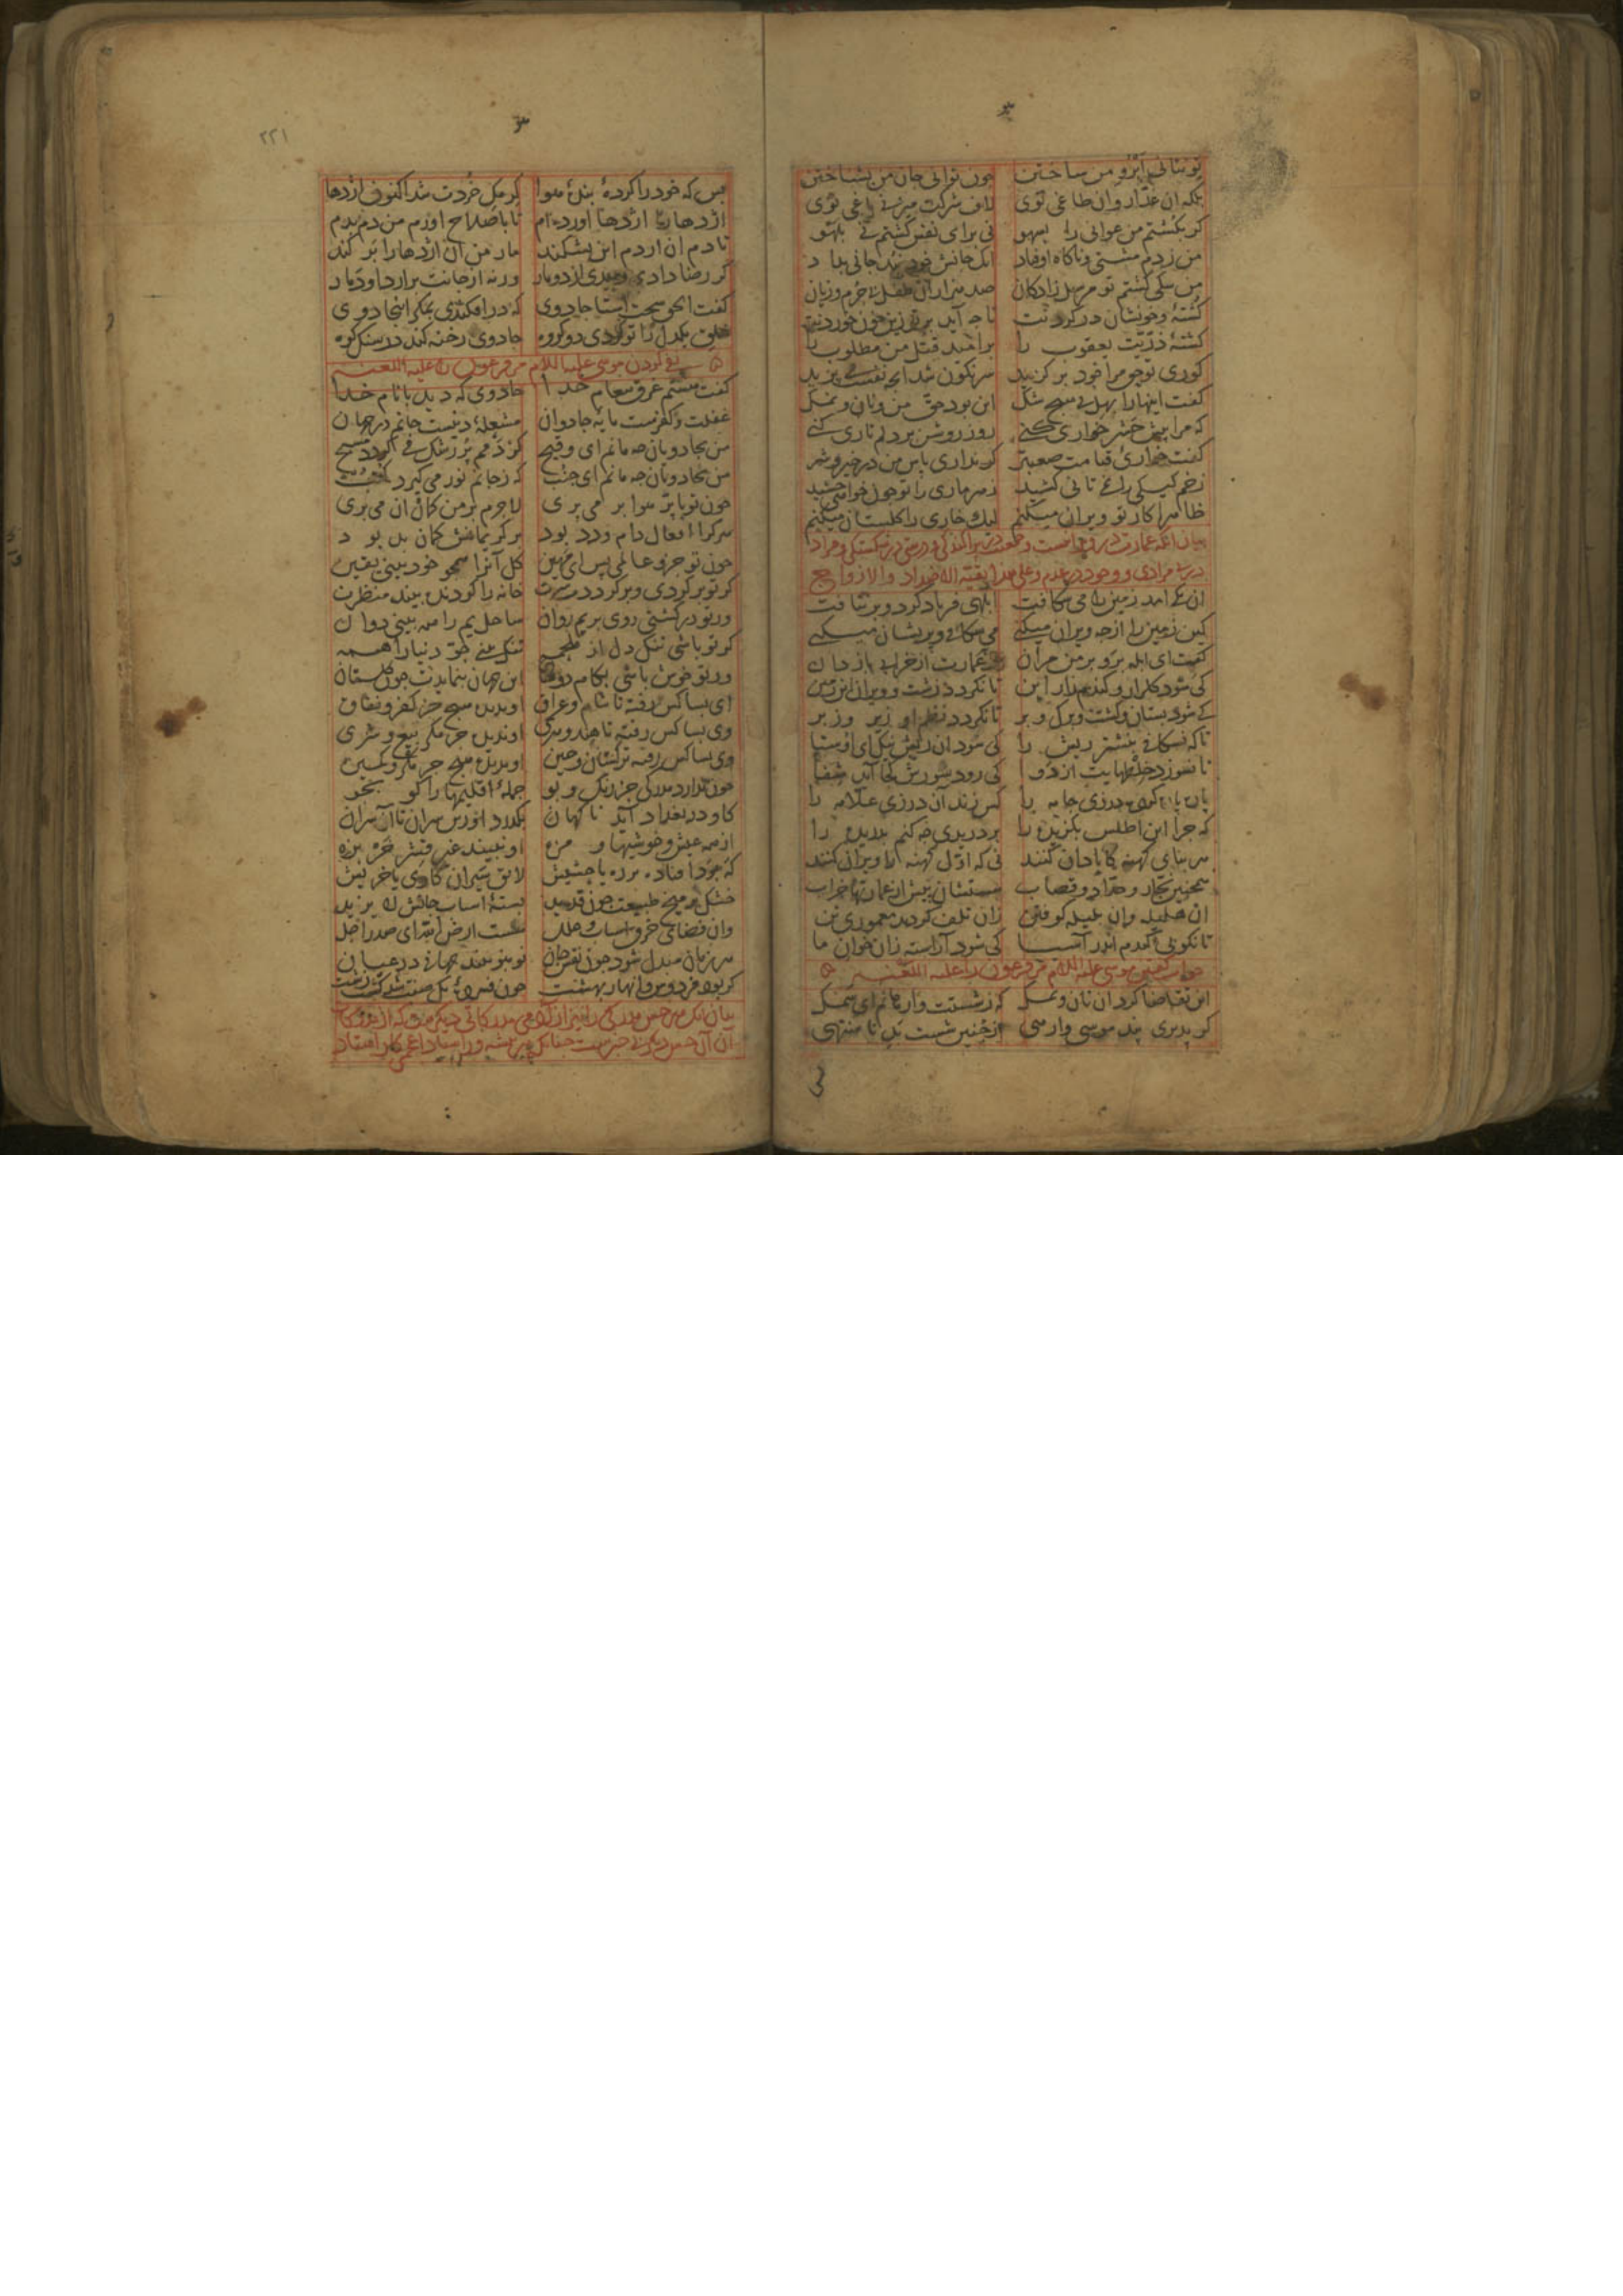 تو نتانی ابروی من ساختن چون توانی جان من بشناختن
بلکه آن غدار وان طاغی توی لاف شرکت میزنی یاغی توی
کر بکشتم من عوانی را بسهو نی برای نفس کشتم نی بلهو
من زدم مشتی و ناکاه اوفتاد انک جانش خود نبد جانی بداد
من سکی کشتم تو مرسل زادکان صد هزاران طفل بی جرم و زیان
کشته و خونشان در کردنت تا چه آید بر تو زین خون خوردنت
کشته ذریت یعقوب را بر امید قتل من مطلوب را
کوری تو حق مرا خود بر کزید سرنکون شد انچه نفست می پزید
کفت اینها را بهل بی هیچ شک این بود حق من و نان و نمک
که مرا پیش حشر خواری کنی روز روشن بر دلم تاری کنی
کفت خواری قیامت صعبتر کر نداری پاس من در خیر و شر
زخم کیکی را نمی تانی کشید زهر ماری را تو چون خواهی چشید
ظاهرا کار تو ویران میکنم لیک خاری را کلستان میکنم
بیان انکه عمارت در ویرانیست و جمعیت در پراکندکی و درستی در شکستکی و مراد
در بی مرادی و وجود در عدم و علی هذا بقیة الاضداد والازواج
آن یکی آمد زمین را می شکافت ابلهی فریاد کرد و بر نتافت
کین زمین را از چه ویران میکنی می شکافی و پریشان میکنی
کفت ای ابله برو بر من مران تو عمارت از خرابی باز دان
کی شود کلزار و کندمزار این تا نکردد زشت و ویران این زمین
کی شود بستان و کشت و برک و بر تا نکردد نظم او زیر و زبر
تا که نشکافی بنشتر ریش را کی شود آن ریش نیک ای اوستا
تا نسوزد خلطهایت از دوا کی رود شورش کجا آید شفا
پاره پاره کرده درزی جامه را کس زند آن درزی علامه را
که چرا این اطلس بکزیده را بر دریدی چه کنم بدریده را
هر بنای کهنه کابادان کنند نی که اول کهنه را ویران کنند
همچنین نجار و حداد و قصاب هستشان پیش از عمارتها خراب
آن هلیله وان بلیله کوفتن زان تلف کردند معموری تن
تا نکوبی کندم اندر آسیا کی شود آراسته زان خوان ما
جواب کفتن موسی علیه السلام مر فرعون را علیه اللعنه
این تقاضا کرد آن نان و نمک که ز شستت وا رهانم ای سمک
کر پذیری پند موسی وارهی از چنین شست بد نا منتهی
۲۲۱
بس که خود را کردهٔ بندهٔ هوا کرمکی خردت شد اکنون اژدها
اژدها را اژدها آورده ام تا باصلاح آورم من دم بدم
تا دم آن از دم این بشکند مار من آن اژدها را بر کند
کر رضا دادی رهیدی از دو مار ورنه از جانت برارد او دمار
کفت الحق سخت استا جادوی که در افکندی بمکر اینجا دوی
خلق یکدل را تو کردی دو کروه جادوی رخنه کند در سنک کوه
نفی کردن موسی علیه السلام مر فرعون را علیه اللعنه
کفت هستم غرق پیغام خدا جادوی که دید با نام خدا
غفلت و کفرست مایه جادوان مشعلهٔ دینست جانم در جهان
من بجادویان چه مانم ای وقیح کز دمم پر رشک می کردد مسیح
من بجادویان چه مانم ای جنب که ز جانم نور می کیرد کتب
چون تو با پر هوا بر می پری لاجرم بر من کمان آن می بری
هر کرا افعال دام و دد بود بر کریمانش کمان بد بود
چون تو جزو عالمی پس ای مهین کل آنرا همچو خود بینی یقین
کر تو بر کردی و بر کردد سرت خانه را کردنده بیند منظرت
ور تو در کشتی روی بر یم روان ساحل یم را همه بینی دوان
کر تو باشی تنک دل از ملحمه تنک بینی جو دنیا را همه
ور تو خوش باشی بکام دوستان این جهان بنمایدت چون کلستان
ای بسا کس رفته تا شام و عراق او ندیده هیچ جز کفر و نفاق
وی بسا کس رفته تا هند و هری او ندیده جز مکر بیع و شری
وی بسا کس رفته ترکستان و چین او ندیده هیچ جز مکر و کمین
چون ندارد مدرکی جز رنک و بو جملهٔ اقلیمها را کو بجو
کاو در بغداد آید ناکهان بکذرد او زین سران تا آن سران
از همه عیش و خوشیها و مزه او نبیند غیر قشر خربزه
که بود افتاده بر ره یا حشیش لایق سیران کاوی یا خریش
خشک بر میخ طبیعت چون قدید بستهٔ اسباب جانش لا یزید
وان فضای خرق اسباب و علل هست ارض الله ای صدر اجل
هر زمان مبدل شود چون نقش جان نو بنو بیند جهانی در عیان
کر بود فردوس و انهار بهشت چون فسردهٔ یک صفت شد کشت زشت
بیان انک هر حس مدرکی را نیز از آدمی مدرکاتی دیکرست که از مدرکات
آن آن حس دیکر بی خبرست چنانک هر پیشه ور استاد اعجمی کار استاد